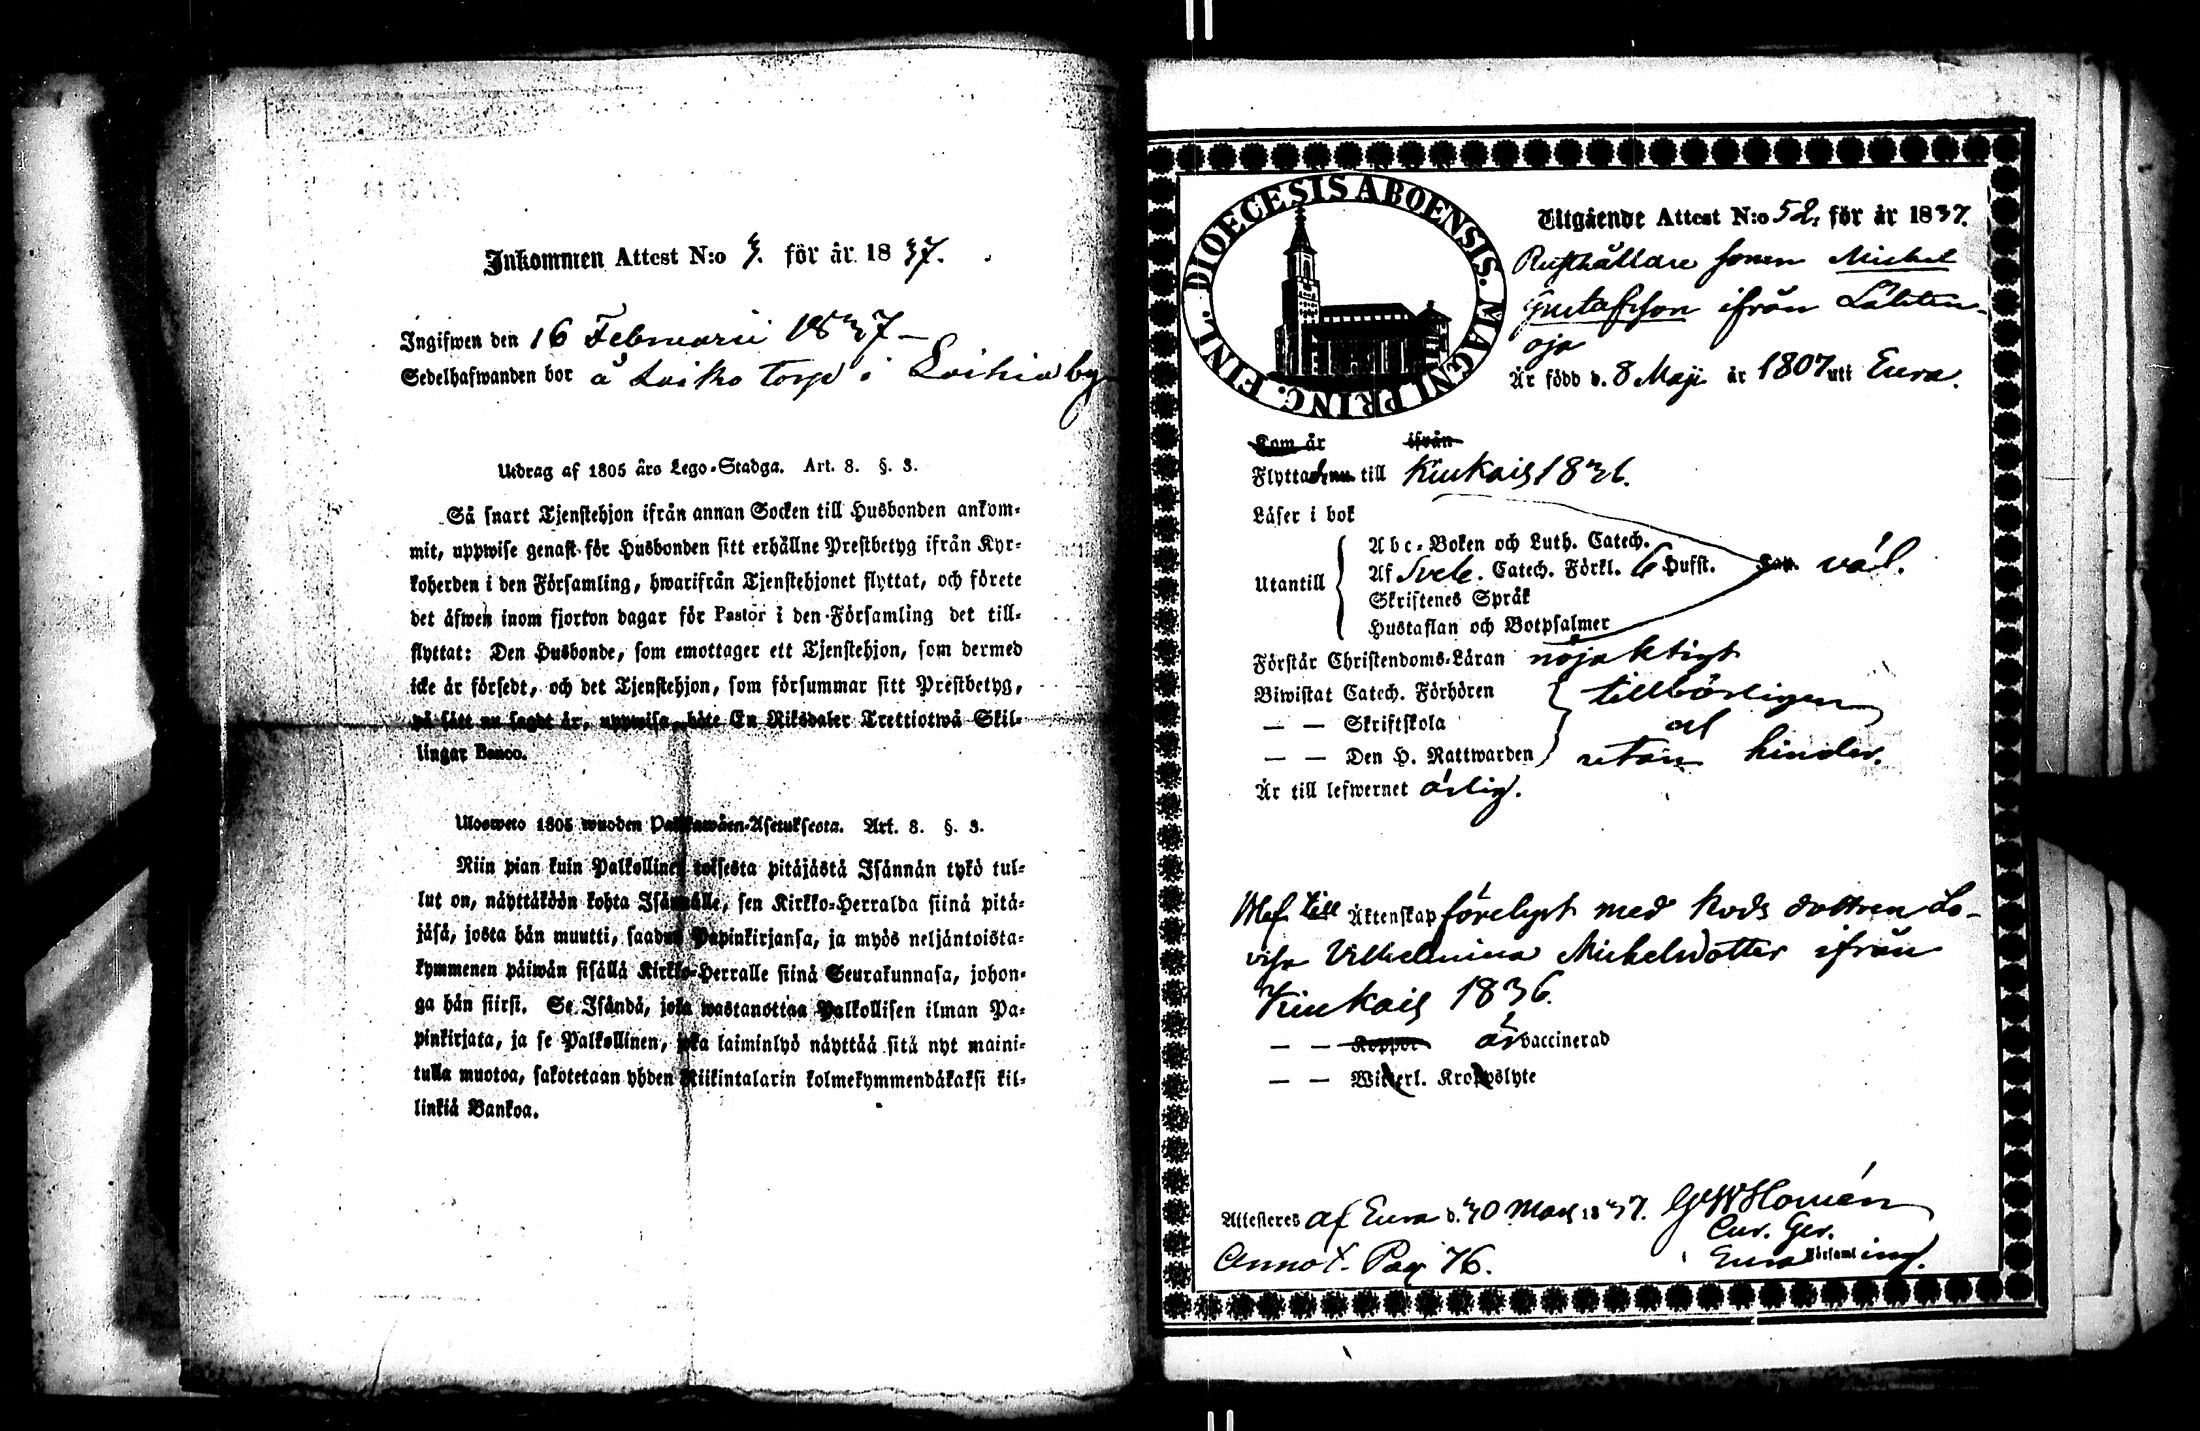 Inkommen Attest N:o 3. för år 1837.
Ingifwen den 16 Februarii 1837 –
Sedelhafwanden bor å Laiko Torp i Laihia by
Utdrag af 1805 års Lego-Stadga. Art. 8. §. 3.
Så snart Tjenstehjon ifrån annan Socken till Husbonden ankom-
mit, uppwise genast för Husbonden sitt erhållne Prestbetyg ifrån Kyr-
koherden i den Församling, hwarifrån Tjenstehjonet flyttat, och förete
det äfwen inom fjorton dagar för Pastor i den Församling det till-
flyttat: Den Husbonde, som emottager ett Tjenstehjon, som dermed
icke är försedt, och det Tjenstehjon, som försummar sitt Prestbetyg,
på sätt nu sagdt är, uppwisa, böte En Riksdaler Trettiotwå Skil-
lingar Banco.
Ulosweto 1805 wuoden Palkkawäen-Asetuksesta. Art. 8. §. 3.
Niin pian kuin Palkollinen toisesta pitäjästä Isännän tykö tul-
lut on, näyttäköön kohta Isännälle, sen Kirkko-Herralda siinä pitä-
jäsä, josta hän muutti, saadun Papinkirjansa, ja myös neljäntoista-
kymmenen päiwän sisällä Kirkko-Herralle siinä Seurakunnasa, johon-
ga hän siirsi. Se Isändä, joka wastanottaa Palkollisen ilman Pa-
pinkirjata, ja se Palkollinen, joka laiminlyö näyttää sitä nyt maini-
tulla muotoa, sakotetaan yhden Riikintalarin kolmekymmendäkaksi kil-
linkiä Bankoa.
DIOECESIS ABOENSIS. MAGNI PRINC. FINL.
Utgående Attest N:o 52. för år 1837.
Rusthållare sonen Michel
Gustafsson ifrån Lähten-
oja
Är född d. 8 Maji år 1807 uti Eura.
Kom år ifrån
Flyttade nu till Kiukais 1836.
Läser i bok
Abc-Boken och Luth. Catech.
Utantill Af Sveb. Catech. Förkl. 6 Hufst. väl.
Skriftenes Språk
Hustaflan och Botpsalmer
Förstår Christendoms-Läran nöjaktigt
Biwistat Catech. Förhören tillbörligen
— — Skriftskola
— — Den H. Nattwarden utan hinder.
Är till lefwernet ärlig.
Till Äktenskap förelyst med Kods dottren Lo-
visa Vilhelmina Michelsdotter ifrån
Kiukais 1836.
— — Koppor är vaccinerad
— — Witterl. Kroppslyte
Attesteres af Eura d. 30 Mars 1837. G W Homén
Cur. Ger.
Annot. Pag 76. Eura Församling.